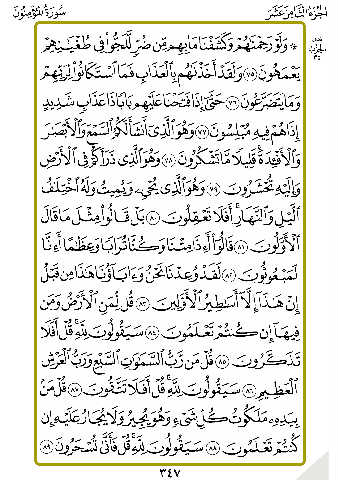 الجزء الثامن عشر
سورة المؤمنون
۞ وَلَوْ رَحِمْنَٰهُمْ وَكَشَفْنَا مَا بِهِم مِّن ضُرٍّ لَّلَجُّوا۟ فِى طُغْيَٰنِهِمْ
يَعْمَهُونَ ٧٥ وَلَقَدْ أَخَذْنَٰهُم بِٱلْعَذَابِ فَمَا ٱسْتَكَانُوا۟ لِرَبِّهِمْ
وَمَا يَتَضَرَّعُونَ ٧٦ حَتَّىٰٓ إِذَا فَتَحْنَا عَلَيْهِم بَابًا ذَا عَذَابٍ شَدِيدٍ
إِذَا هُمْ فِيهِ مُبْلِسُونَ ٧٧ وَهُوَ ٱلَّذِىٓ أَنشَأَ لَكُمُ ٱلسَّمْعَ وَٱلْأَبْصَٰرَ
وَٱلْأَفْـِٔدَةَ ۚ قَلِيلًا مَّا تَشْكُرُونَ ٧٨ وَهُوَ ٱلَّذِى ذَرَأَكُمْ فِى ٱلْأَرْضِ
وَإِلَيْهِ تُحْشَرُونَ ٧٩ وَهُوَ ٱلَّذِى يُحْىِۦ وَيُمِيتُ وَلَهُ ٱخْتِلَٰفُ
ٱلَّيْلِ وَٱلنَّهَارِ ۚ أَفَلَا تَعْقِلُونَ ٨٠ بَلْ قَالُوا۟ مِثْلَ مَا قَالَ
ٱلْأَوَّلُونَ ٨١ قَالُوٓا۟ أَءِذَا مِتْنَا وَكُنَّا تُرَابًا وَعِظَٰمًا أَءِنَّا
لَمَبْعُوثُونَ ٨٢ لَقَدْ وُعِدْنَا نَحْنُ وَءَابَآؤُنَا هَٰذَا مِن قَبْلُ
إِنْ هَٰذَآ إِلَّآ أَسَٰطِيرُ ٱلْأَوَّلِينَ ٨٣ قُل لِّمَنِ ٱلْأَرْضُ وَمَن
فِيهَآ إِن كُنتُمْ تَعْلَمُونَ ٨٤ سَيَقُولُونَ لِلَّهِ ۚ قُلْ أَفَلَا
تَذَكَّرُونَ ٨٥ قُلْ مَن رَّبُّ ٱلسَّمَٰوَٰتِ ٱلسَّبْعِ وَرَبُّ ٱلْعَرْشِ
ٱلْعَظِيمِ ٨٦ سَيَقُولُونَ لِلَّهِ ۚ قُلْ أَفَلَا تَتَّقُونَ ٨٧ قُلْ مَنۢ
بِيَدِهِۦ مَلَكُوتُ كُلِّ شَىْءٍ وَهُوَ يُجِيرُ وَلَا يُجَارُ عَلَيْهِ إِن
كُنتُمْ تَعْلَمُونَ ٨٨ سَيَقُولُونَ لِلَّهِ ۚ قُلْ فَأَنَّىٰ تُسْحَرُونَ ٨٩
٣٤٧